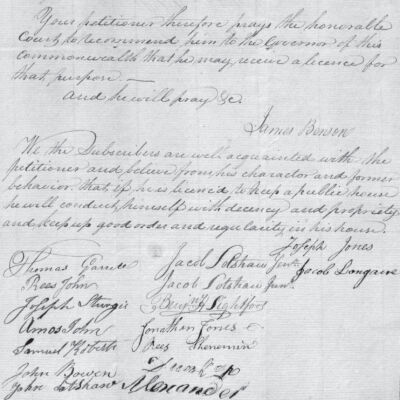 Your petitioner therefore prays the honorable
Court to recommend him to the Governor of this
commonwealth that he may receive a licence for
that purpose —
and he will pray &c.
James Benson
We the Subscribers are well acquainted with the
petitioner and believe from his character and former
behavior, that if he is licenc'd to keep a public house
he will conduct himself with decency and propriety
and keep up good order and regularity in his house.
Joseph Jones
Thomas
Jacob Lolshaw Senr.
Jacob Longacre
Rees John
Jacob Lolshaw Jun.
Joseph Sturgis
Benj.n H Lightfoot
Amos John
Jonathan Jones
Samuel Roberts
Rees
John Bowen
John Lolshaw
Alexander